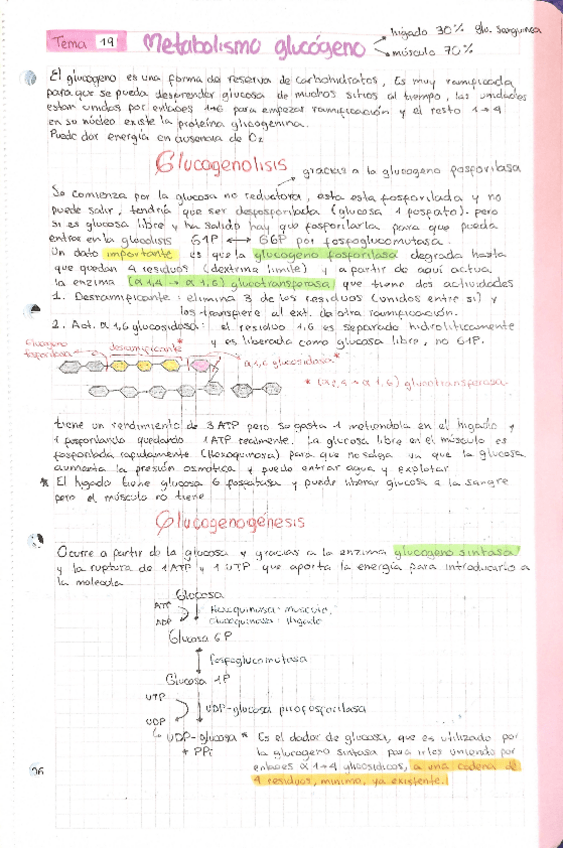 Tema 19 Metabolismo glucógeno
hígado 30% glu. sanguinea
músculo 70%
El glucogeno es una forma de reserva de carbohidratos, Es muy ramificada
para que se pueda desprender glucosa de muchos sitios al tiempo, las unidades
estan unidas por enlaces 1→6 para empezar ramificación y el resto 1→4
en su núcleo existe la proteína glucogenina.
Puede dar energía en ausencia de O2
Glucogenolisis
gracias a la glucogeno fosforilasa
Se comienza por la glucosa no reductora, esta esta fosforilada y no
puede salir, tendría que ser desfosforilada (glucosa 1 fosfato). pero
si es glucosa libre y ha salido hay que fosforilarla para que pueda
entrar en la glucolisis G1P ↔ G6P por fosfoglucomutasa.
Un dato importante es que la glucogeno fosforilasa degrada hasta
que quedan 4 residuos (dextrina limite) y a partir de aquí actua
la enzima (α 1,4 → α 1,6) glucotransferasa que tiene dos actividades
1. Desramificante: elimina 3 de los residuos (unidos entre si) y
los transfiere al ext. de otra ramificación.
2. Act. α 1,6 glucosidasa: el residuo 1,6 es separado hidroliticamente
y es liberado como glucosa libre, no G1P.
Glucogeno fosforilasa
desramificante *
α 1,6 glucosidasa *
* (α 1,4 → α 1,6) glucotransferasa
tiene un rendimiento de 3 ATP pero se gasta 1 metiendola en el higado y
1 fosforilando quedando 1 ATP realmente. La glucosa libre en el músculo es
fosforilada rapidamente (Hexoquinasa) para que no salga ya que la glucosa
aumenta la presión osmotica y puede entrar agua y explotar
* El higado tiene glucosa 6 fosfatasa y puede liberar glucosa a la sangre
pero el músculo no tiene
Glucogenogénesis
Ocurre a partir de la glucosa y gracias a la enzima glucogeno sintasa
y la ruptura de 1 ATP y 1 UTP que aporta la energía para introducirlo a
la molecula
Glucosa
ATP
ADP
Hexoquinasa: músculo.
Glucoquinasa: Higado
Glucosa 6P
fosfoglucomutasa
Glucosa 1P
UTP
UDP
UDP-glucosa pirofosforilasa
UDP-glucosa *
+ PPi
Es el dador de glucosa, que es utilizado por
la glucogeno sintasa para irlos uniendo por
enlaces α 1→4 glucosidicos, a una cadena de
4 residuos, minimo, ya existente.